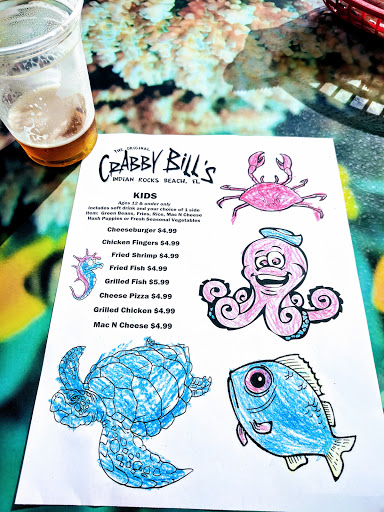 THE ORIGINAL
CRABBY BILL'S
INDIAN ROCKS BEACH, FL
KIDS
Ages 12 & under only
Includes soft drink and your choice of 1 side
Item: Green Beans, Fries, Rice, Mac N Cheese
Hush Puppies or Fresh Seasonal Vegetables
Cheeseburger $4.99
Chicken Fingers $4.99
Fried Shrimp $4.99
Fried Fish $4.99
Grilled Fish $5.99
Cheese Pizza $4.99
Grilled Chicken $4.99
Mac N Cheese $4.99